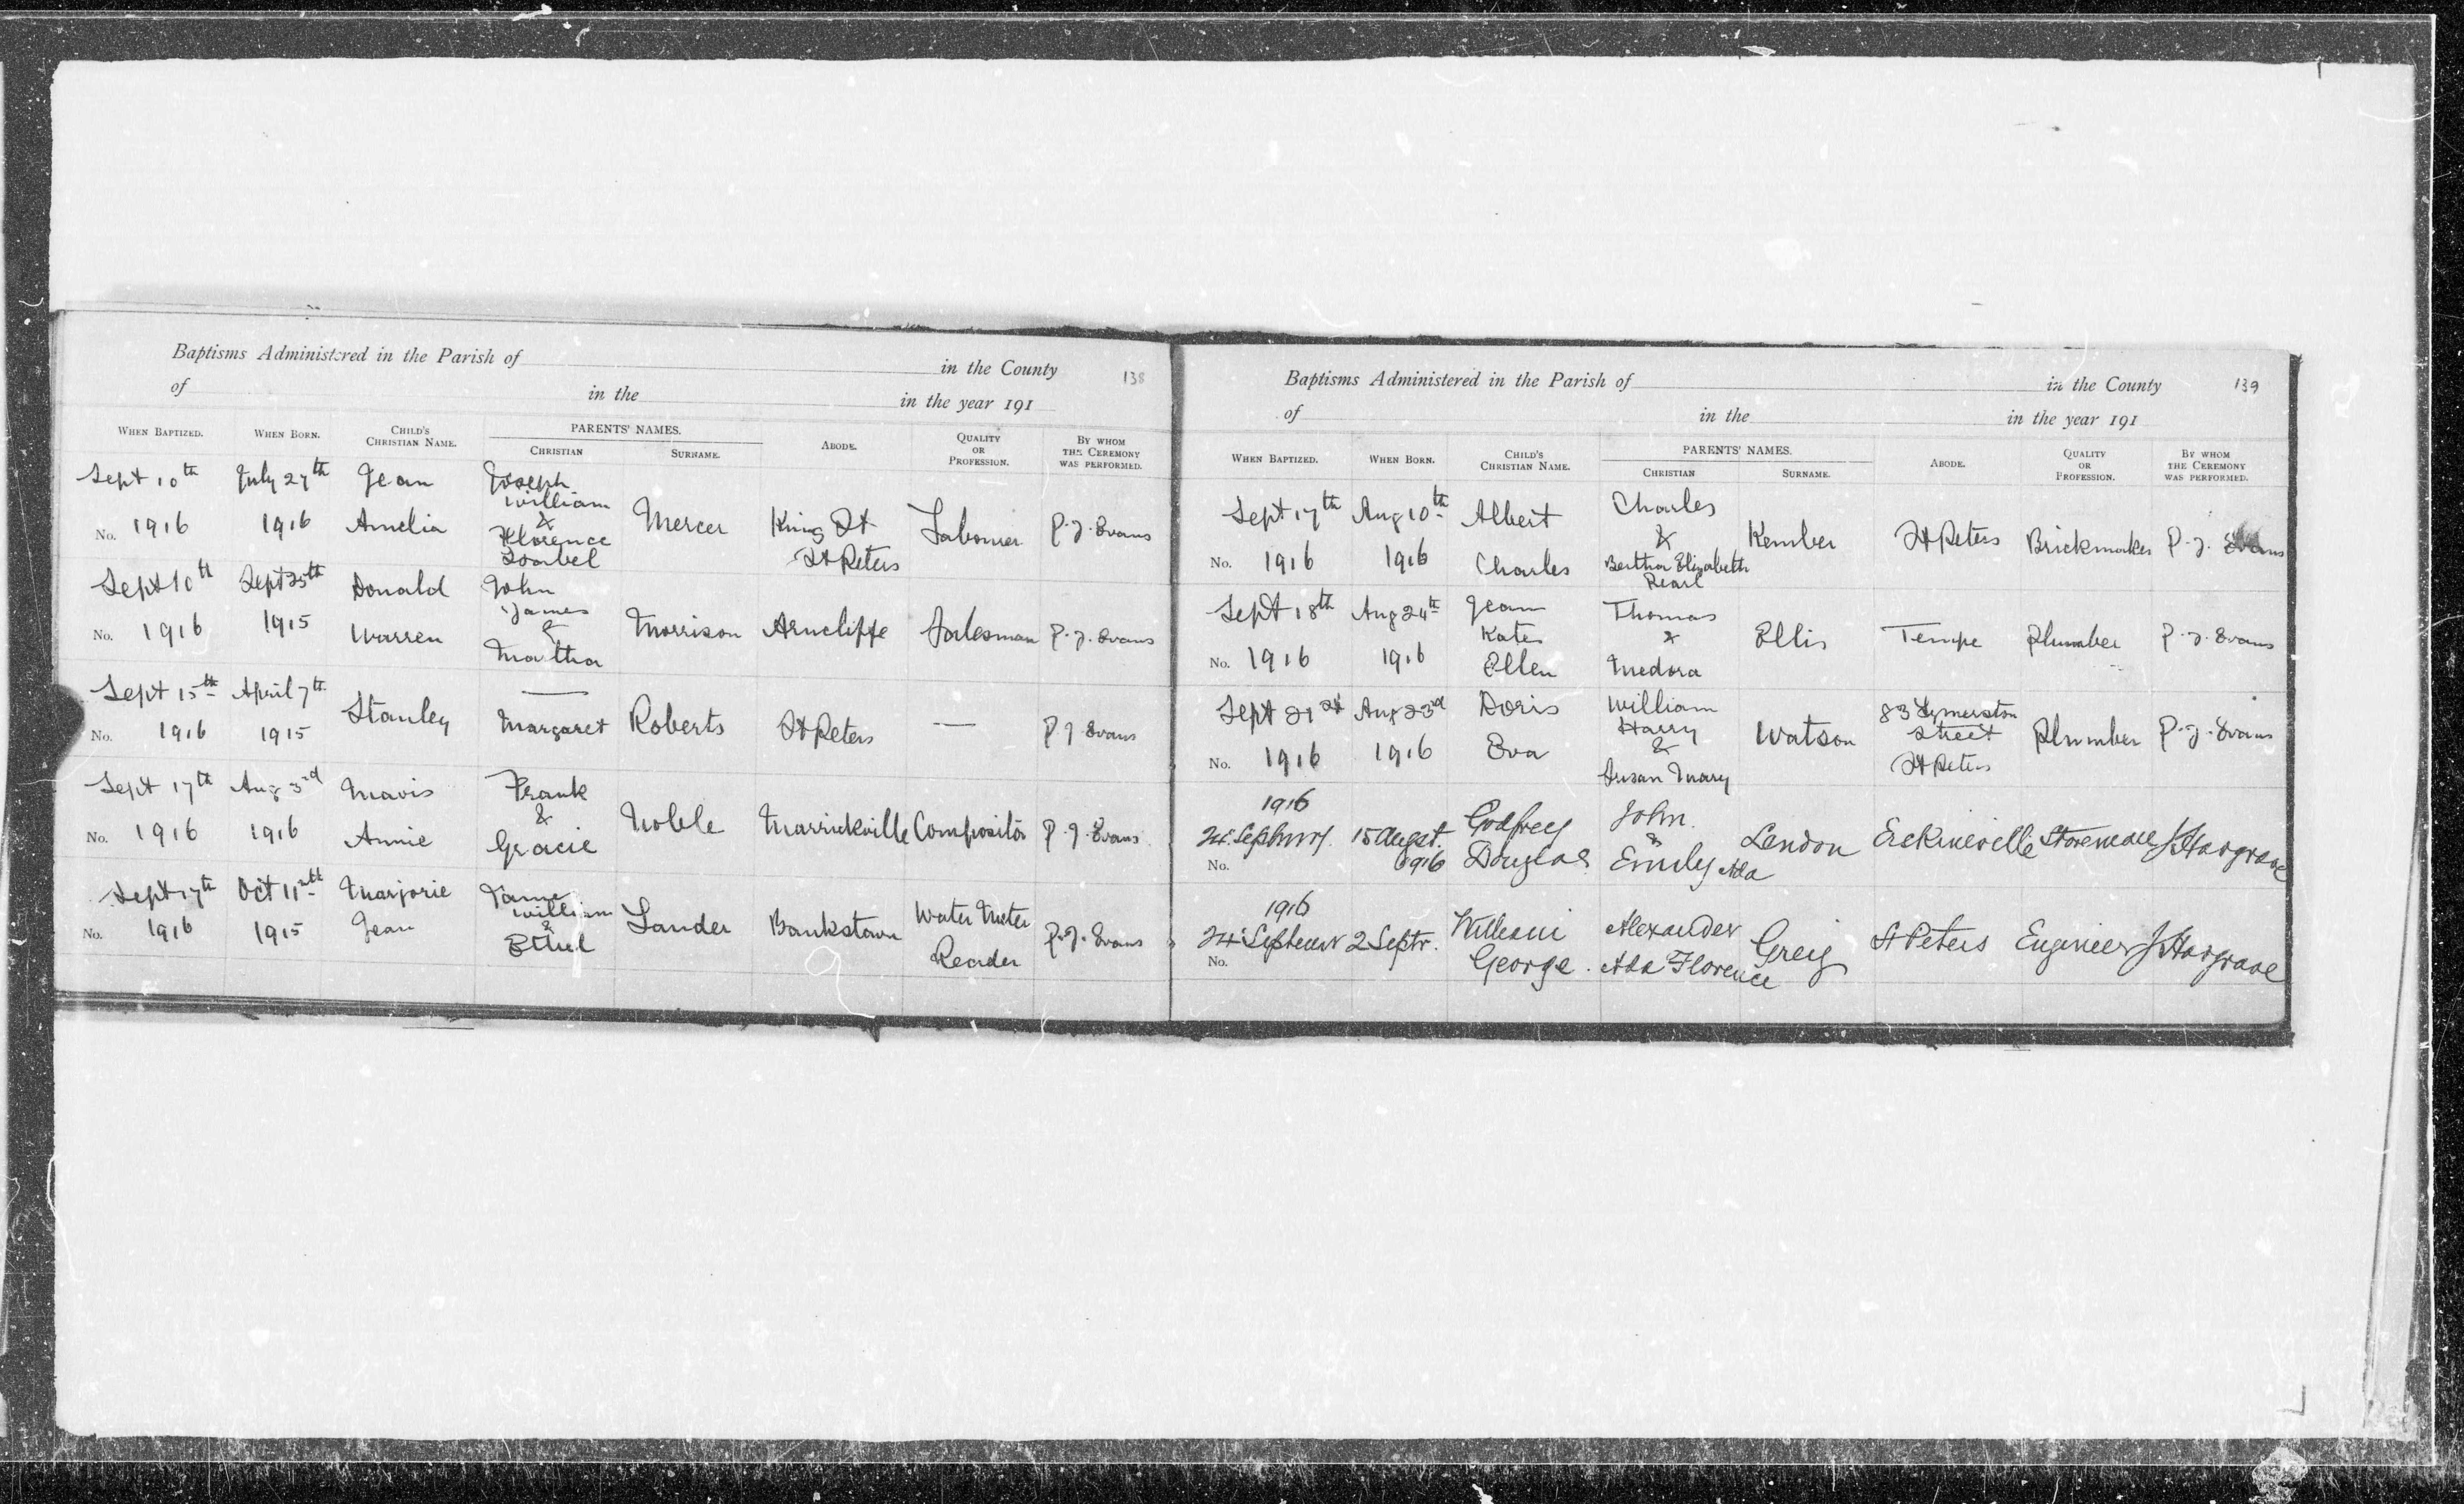 Baptisms Administered in the Parish of in the County 138
of in the in the year 191
WHEN BAPTIZED. WHEN BORN. CHILD'S CHRISTIAN NAME. PARENTS' NAMES. CHRISTIAN SURNAME. ABODE. QUALITY OR PROFESSION. BY WHOM THE CEREMONY WAS PERFORMED.
Sept 10th July 27th Jean Joseph
William
No. 1916 1916 Amelia & Mercer King St Labourer P. J. Evans
Florence
Isabel St Peters
Sept 10th Sept 25th Donald John
James
No. 1916 1915 Warren & Morrison Arncliffe Salesman P. J. Evans
Martha
Sept 15th April 7th Stanley —
No. 1916 1915 Margaret Roberts St Peters — P J Evans
Sept 17th Aug 3rd Mavis Frank
&
No. 1916 1916 Annie Gracie Noble Marrickville Compositor P. J. Evans
Sept 17th Oct 11th Marjorie James
William
No. 1916 1915 Jean & Lander Bankstown Water Meter P. J. Evans
Ethel Reader
Baptisms Administered in the Parish of in the County 139
of in the in the year 191
WHEN BAPTIZED. WHEN BORN. CHILD'S CHRISTIAN NAME. PARENTS' NAMES. CHRISTIAN SURNAME. ABODE. QUALITY OR PROFESSION. BY WHOM THE CEREMONY WAS PERFORMED.
Sept 17th Aug 10th Albert Charles
& Kember St Peters Brickmaker P. J. Evans
No. 1916 1916 Charles Bertha Elizabeth
Pearl
Sept 18th Aug 24th Jean Thomas
Kate & Ellis Tempe Plumber P. J. Evans
No. 1916 1916 Ellen Medora
Sept 21st Aug 23rd Doris William 83
Harry Street
No. 1916 1916 Eva & Watson St Peters Plumber P. J. Evans
Susan Mary
1916 Godfrey John
24 15 & Erskineville Storeman J Hargrave
No. 1916 Douglas Emily Ada
1916 William Alexander
24 2 Septr. Greig St Peters Engineer J Hargrave
No. George. Ada Florence